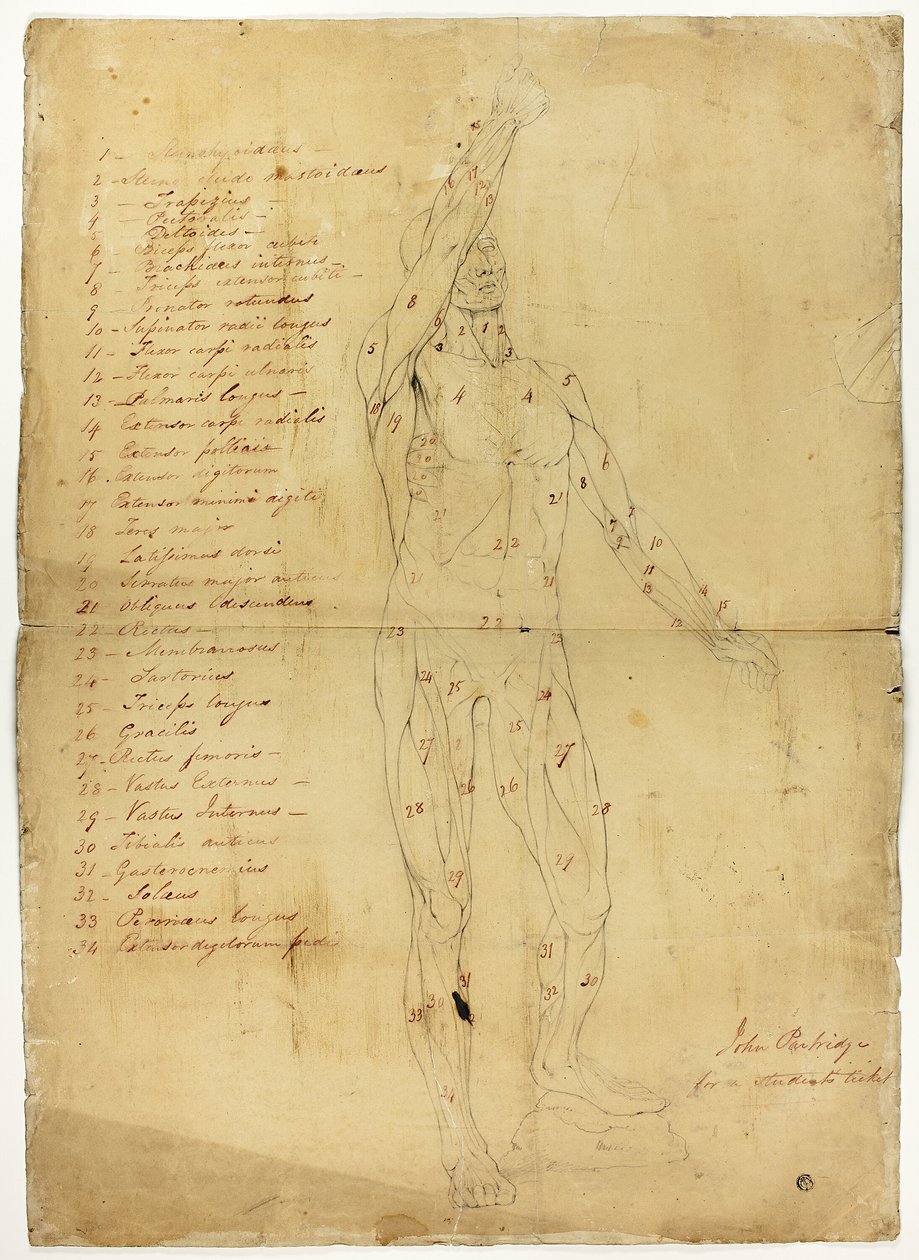 1 - Sternohyoidæus -
2 - Sterno cleido mastoidæus
3 - Trapezius -
4 - Pectoralis -
5 Deltoides -
6 - Biceps flexor cubiti
7 - Brachiæus internus -
8 - Triceps extensor cubiti -
9 - Pronator rotundus
10 - Supinator radii longus
11 - Flexor carpi radialis
12 - Flexor carpi ulnaris
13 - Palmaris longus -
14 Extensor carpi radialis
15 Extensor pollicis
16 . Extensor digitorum
17 Extensor minimi digiti
18 Teres major
19 Latissimus dorsi
20 Serratus major anticus
21 Obliquus descendens
22 - Rectus -
23 - Membranosus
24 - Sartorius
25 - Triceps longus
26 Gracilis
27 - Rectus femoris -
28 - Vastus Externus -
29 - Vastus Internus -
30 Tibialis anticus
31 - Gasterocnemius
32 - Solæus
33 Peronæus longus
34 Extensor digitorum pedis
15
16 17 12
13
8 6 2 1 2
5 3 3
4 4 5
18 19
20
20
6
8
21 21
7 7
9 10
22
11
21 21 13 14
15
22 12
23 23
24 25 24
25
27 27
26 26
28 28
29 29
31
31 30
32
33 30
34
John Partridge
for a students ticket